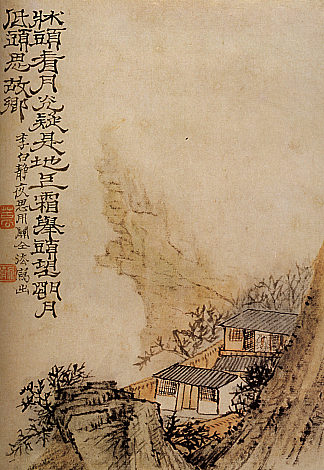 牀頭看月光疑是地上霜舉頭望朙月
低頭思故鄉
李白靜夜思用關仝法寫之